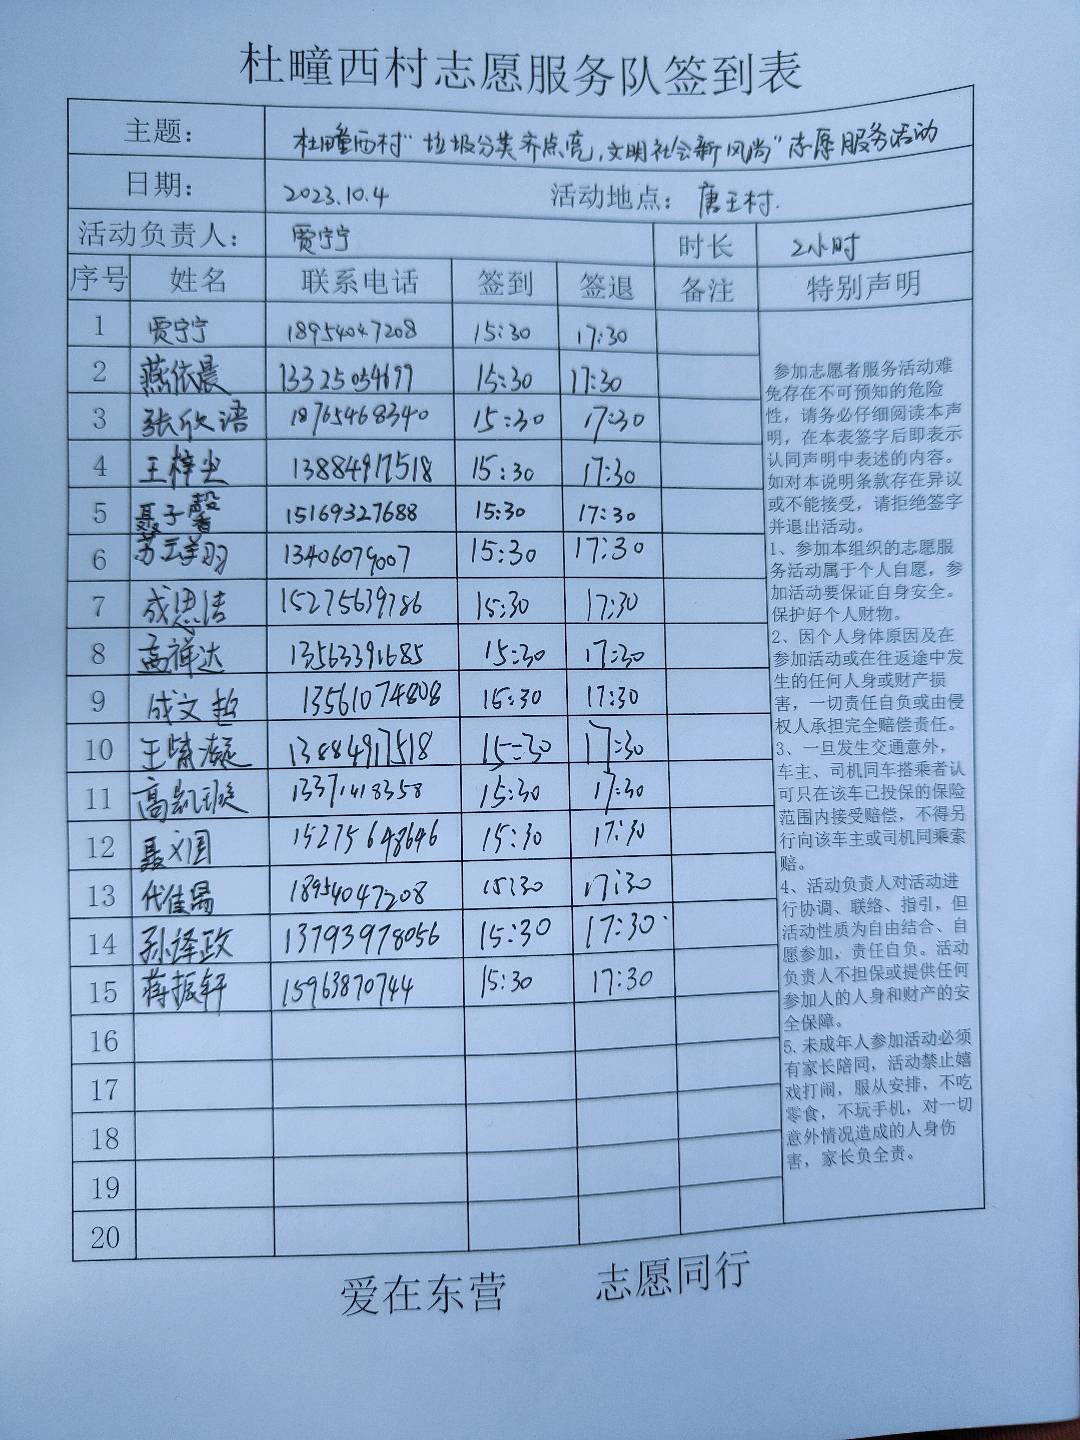 杜疃西村志愿服务队签到表
主题： 杜疃西村"垃圾分类齐点亮，文明社会新风尚"志愿服务活动
日期： 2023.10.4 活动地点： 唐王村.
活动负责人： 贾宁宁 时长 2小时
序号 姓名 联系电话 签到 签退 备注 特别声明
1 贾宁宁 18954047208 15:30 17:30
2 燕依晨 13325054697 15:30 17:30
3 张欣语 18765468340 15:30 17:30
4 王梓尘 13884917518 15:30 17:30
5 聂子馨 15169327688 15:30 17:30
6 苏 羽 13406079007 15:30 17:30
7 成思洁 15275639786 15:30 17:30
8 高祥达 13563391685 15:30 17:30
9 成文 13561074808 15:30 17:30
10 王 凝 13884917518 15:30 17:30
11 高凯璇 13371418358 15:30 17:30
12 聂义国 15275648646 15:30 17:30
13 代佳昌 18954047208 15:30 17:30
14 孙泽政 13793978056 15:30 17:30
15 蒋振轩 15963870744 15:30 17:30
16
17
18
19
20
参加志愿者服务活动难
免存在不可预知的危险
性，请务必仔细阅读本声
明，在本表签字后即表示
认同声明中表述的内容。
如对本说明条款存在异议
或不能接受，请拒绝签字
并退出活动。
1、参加本组织的志愿服
务活动属于个人自愿，参
加活动要保证自身安全。
保护好个人财物。
2、因个人身体原因及在
参加活动或在往返途中发
生的任何人身或财产损
害，一切责任自负或由侵
权人承担完全赔偿责任。
3、一旦发生交通意外，
车主、司机同车搭乘者认
可只在该车已投保的保险
范围内接受赔偿，不得另
行向该车主或司机同乘索
赔。
4、活动负责人对活动进
行协调、联络、指引，但
活动性质为自由结合、自
愿参加，责任自负。活动
负责人不担保或提供任何
参加人的人身和财产的安
全保障。
5.未成年人参加活动必须
有家长陪同，活动禁止嬉
戏打闹，服从安排，不吃
零食，不玩手机，对一切
意外情况造成的人身伤
害，家长负全责。
爱在东营 志愿同行